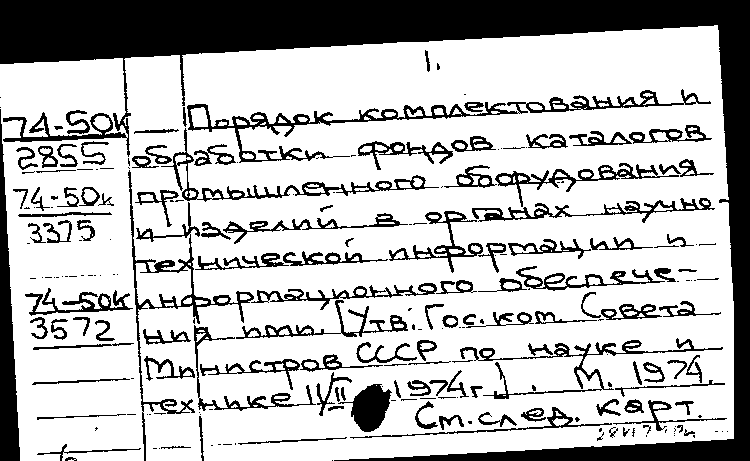 1.
74-50к Порядок комплектования и
2855 обработки фондов каталогов
74-50к промышленного оборудования
3375 и изделий в органах научно-
технической информации и
74-50к информационного обеспече-
3572 ния нтп. [Утв. Гос. ком. Совета
Министров СССР по науке и
технике 11/II 1974г.]. М., 1974.
См. след. карт.